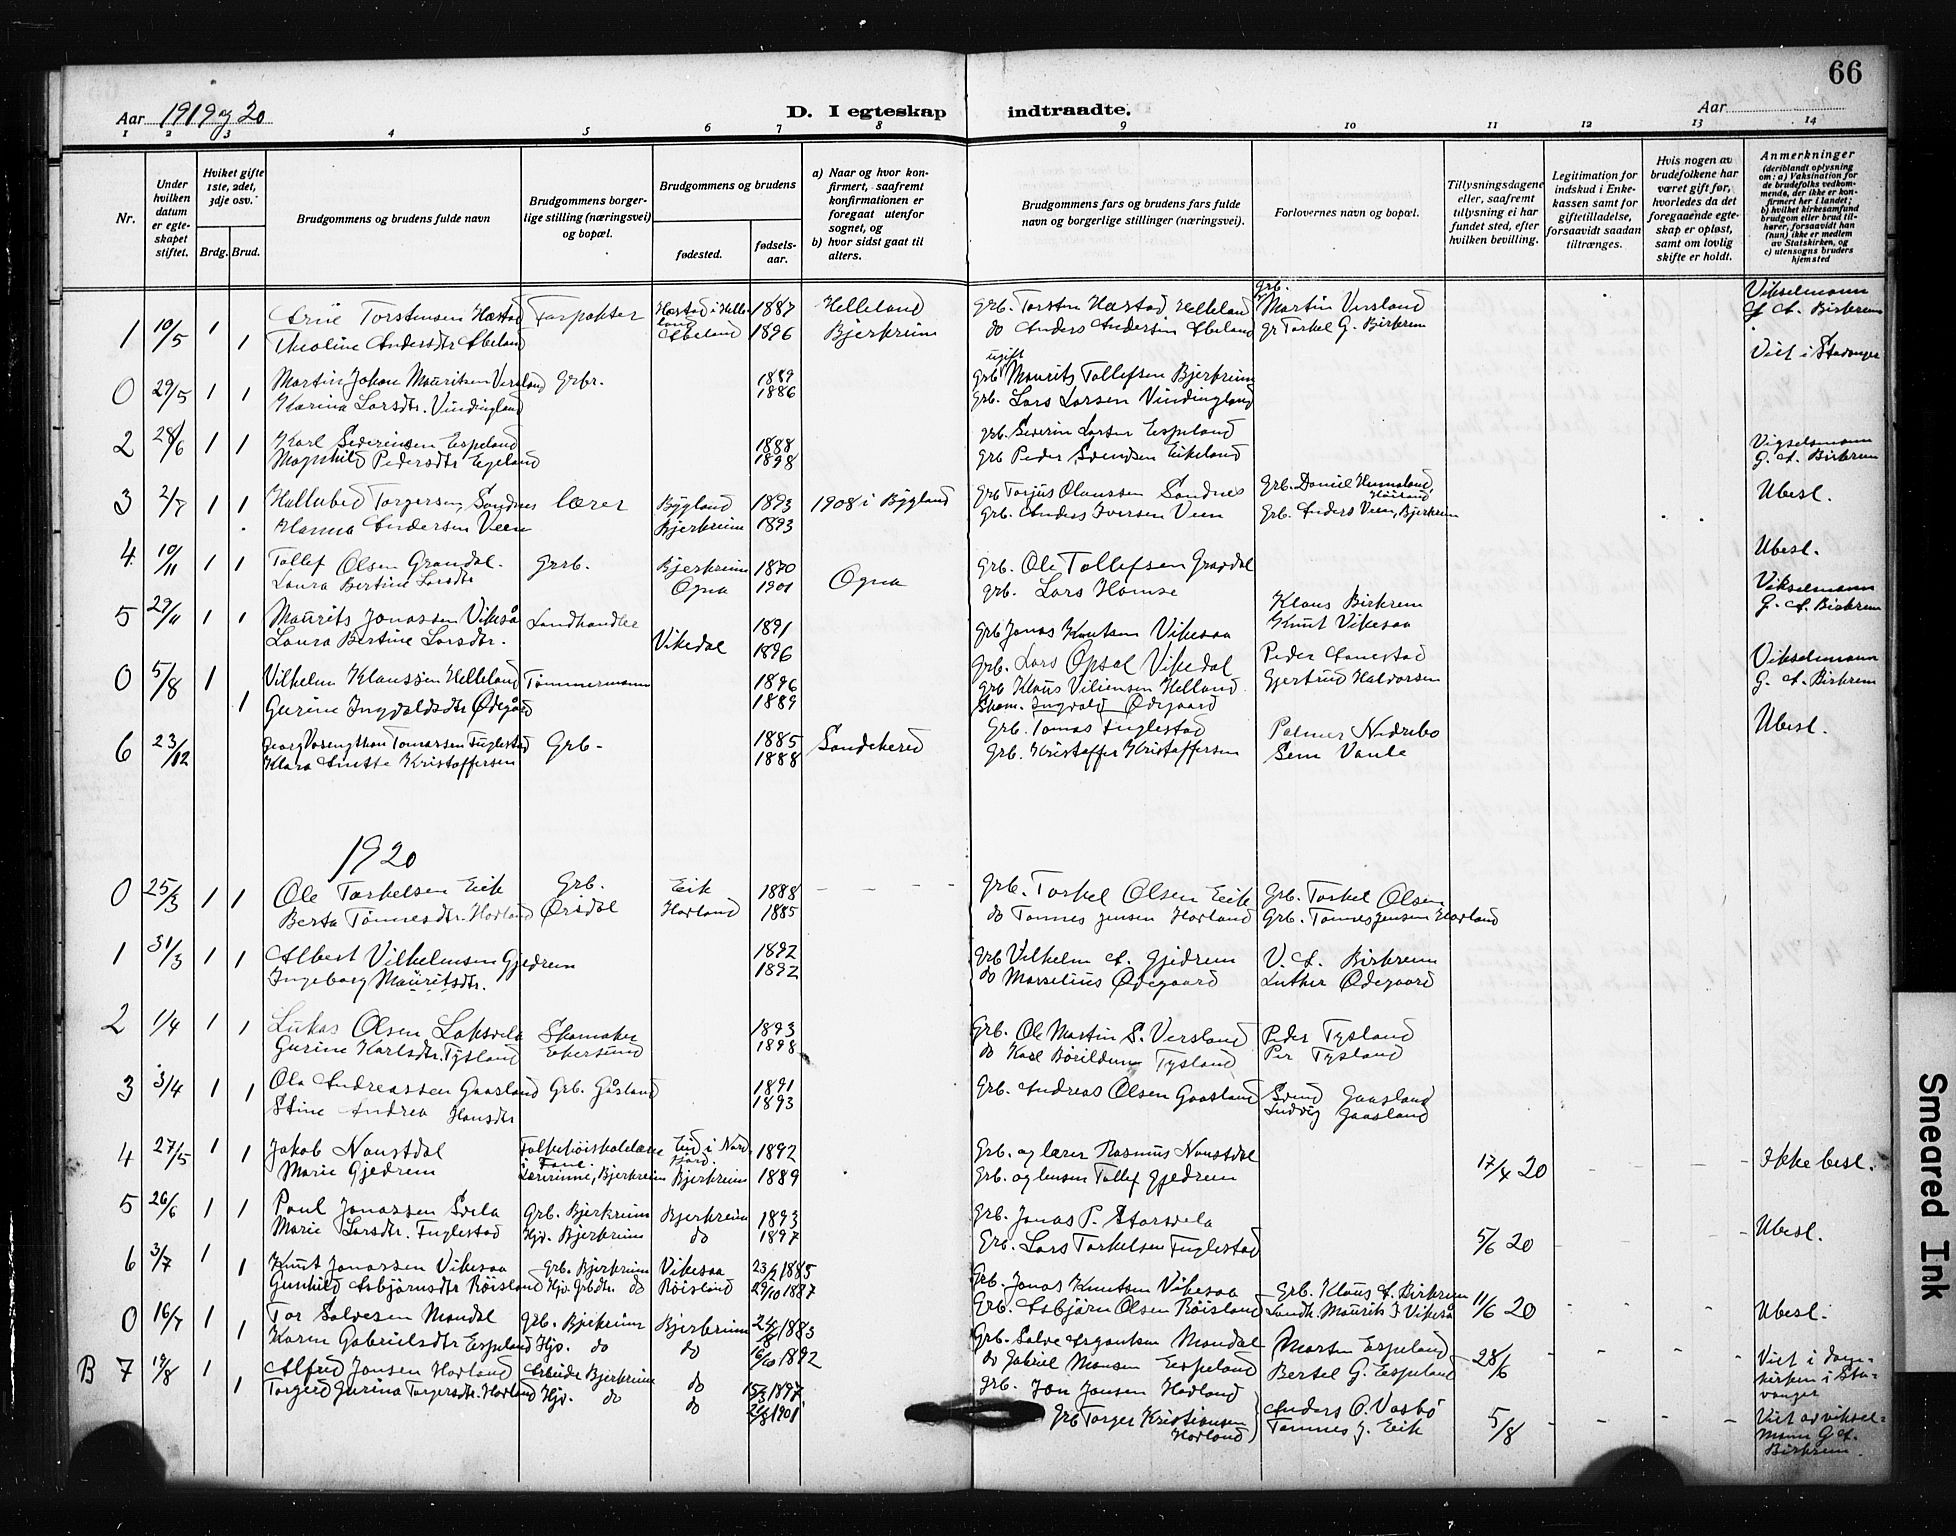 66
Aar 1919 og 20
D. I egteskap indtraadte.
Aar
1 2 3 4 5 6 7 8 9 10 11 12 13 14
Nr.
Under hvilken datum er egteskapet stiftet.
Hviket gifte 1ste, 2det, 3dje osv.
Brdg. Brud.
Brudgommens og brudens fulde navn
Brudgommens borgerlige stilling (næringsvei) og bopæl.
Brudgommens og brudens
fødested.
fødselsaar.
a) Naar og hvor konfirmert, saafremt konfirmationen er foregaat utenfor sognet, og
b) hvor sidst gaat til alters.
Brudgommens fars og brudens fars fulde navn og borgerlige stillinger (næringsvei).
Forlovernes navn og bopæl.
Tillysningsdagene eller, saafremt tillysning ei har fundet sted, efter hvilken bevilling.
Legitimation for indskud i Enkekassen samt for giftetilladelse, forsaavidt saadan tiltrænges.
Hvis nogen av brudefolkene har været gift før, hvorledes da det foregaaende egteskap er opløst, samt om lovlig skifte er holdt.
Anmerkninger (deriblandt oplysning om: a) Vaksination for de brudefolks vedkommende, der ikke er konfirmert her i landet; b) hvilket kirkesamfund brudgom eller brud tilhører, forsaavidt han (hun) ikke er medlem av Statskirken, og c) utensogns bruders hjemsted
1 10/5 1 Arne Torstensen Hæstad Forpakter Hæstad i Helleland 1887 Helleland Grb. Torsten Hæstad Helleland Grb. Martin Versland Vikselmann G. A. Birkrem
1 Theoline Andersdtr Abeland Abeland 1896 Bjerkreim do Anders Andersen Abeland gr Torkel G. Birkrem
0 29/5 1 1 Martin Johan Mauritsen Versland Grbr. 1889 ugift Grb. Maurits Tollefsen Bjerkreim Viet i Stavanger
Karina Larsdtr. Vindingland 1886 Grb. Lars Larsen Vindingland
2 28/6 1 1 Karl Severinsen Espeland 1888 Grb. Severin Larsen Espeland Vigselsmann
Magnhild Pedersdtr Egeland 1898 Grb Peder Svendsen Eikeland G. A. Birkrem
3 2/7 1 1 Hallvard Torgersen Sandnes lærer Bygland 1893 1908 i Bygland Grb Torjus Olaussen Sandnes Grb. Daniel Hummeland, Ubesl.
Hanna Andersen Veen Bjerkreim 1893 Grb. Anders Iversen Veen Grb. Anders Veen, Bjerkreim
4 10/11 1 1 Tollef Olsen Grøndal. Grb. Bjerkreim 1870 Ogna Grb. Ole Tollefsen Grøndal Ubesl.
Laura Bertine Larsdtr Ogna 1901 Grb. Lars Homse
5 29/11 1 1 Maurits Jonassen Vikeså Landhandler 1891 Grb Jonas Knutsen Vikesaa Klaus Birkrem Knut Vikesaa Vikselmann G. A. Birkrem
Laura Bertine Larsdtr. Vikedal 1896 Grb. Lars Opsal Vikedal
0 5/8 1 Vilhelm Klaussen Helleland Tømmermann 1896 Grb Klaus Viliemsen Helland Peder Aanestad Vikselmann
1 Gurine Ingvaldsdtr Ødegård 1889 Skom. Ingvald Ødegaard Gjertrud Haldorsen G. A. Birkrem
6 23/12 Georg Tomassen Fuglestad Grb. 1885 Sandekered Grb. Tomas Fuglestad Palmer Nedrebo Ubesl.
Klara Anette Kristoffersen 1888 Grb. Kristoffer Kristoffersen Sem Vaule
1920
0 25/3 1 1 Ole Torkelsen Eik Grb. Eik 1888 Grb. Torkel Olsen Eik Grb. Torkel Olsen
Berta Tønnesdtr. Hovland Ørsdal Hovland 1885 do Tønnes Jensen Hovland Grb. Tønnes Jensen Hovland
1 31/3 1 1 Albert Vilhelmsen Gjedrem 1892 Grb Vilhelm A. Gjedrem V. A. Birkrem
Ingeborg Mauritsdtr. 1892 do Marselius Ødegaard Luther Ødegaard
2 1/4 1 1 Lukas Olsen Laksvela Skomaker 1893 Grb. Ole Martin S. Versland Peder Tysland
Gurine Karlsdtr. Tysland Ekersund 1898 do Karl Børildsen Tysland Per Tysland
3 3/4 1 1 Ola Andreassen Gaasland Grb. Gåsland 1891 Grb. Andreas Olsen Gaasland Svend Gaasland
Stine Andrea Hansdtr 1893 Ludvig Gaasland
4 27/5 1 1 Jakob Naustdal Folkehøiskolelærer i Fane. Eid i Nordfjord. 1892 Grb. og lærer Rasmus Naustdal 17/4 20 Ikke besl.
Marie Gjedrem Lærerinne, Bjerkreim Bjerkreim 1889 Grb. og lensm Tollef Gjedrem
5 26/6 1 1 Paul Jonassen Svela Grb. Bjerkreim Bjerkreim 1893 Grb. Jonas P. Storsvela 5/6 20 Ubesl.
Marie Larsdtr. Fuglestad Hjv. Bjerkreim do 1897 Grb. Lars Torkelsen Fuglestad
6 3/7 1 1 Knut Jonassen Vikesaa Grb. Bjerkreim Vikesaa 23/2 1885 Grb. Jonas Knutsen Vikesaa Grb. Klaus A. Birkrem 11/6 20 Ubesl.
Gunhild Asbjørnsdtr Røisland Hjv. Grbdtr. do Røisland 29/10 1887 Grb. Asbjørn Olsen Røisland Landh. Maurits J Vikeså
0 16/7 1 1 Tor Salvesen Mondal Grb. Bjerkreim Bjerkreim 1883 Grb. Salve Mondal Morten Espeland 28/6 Viet i domkirken i Stavanger
Karen Gabrielsdtr Espeland Hjv. do do 16/10 1892 do Gabriel Monsen Espeland Bertel G. Espeland
B 7 19/8 1 Alfred Jonsen Hovland Arbeider Bjerkreim do 15/3 1897 Grb. Jon Jonsen Hovland Anders O. Vasbø 5/8 Viet av vikselmann G A. Birkrem.
1 Torgerd Gurina Torgersdtr. Hovland Hjv. do do 1901 Grb Torger Kristiansen Hovland Tønnes J. Eik
Smeared Ink